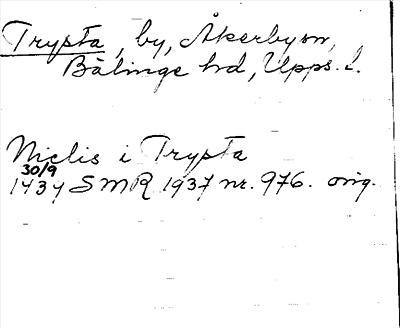 Trypta, by, Åkerby sn,
Bälinge hd, Upps. l.
Niclis i Trypta
30/9
1434 SMR 1937 nr. 976. orig.